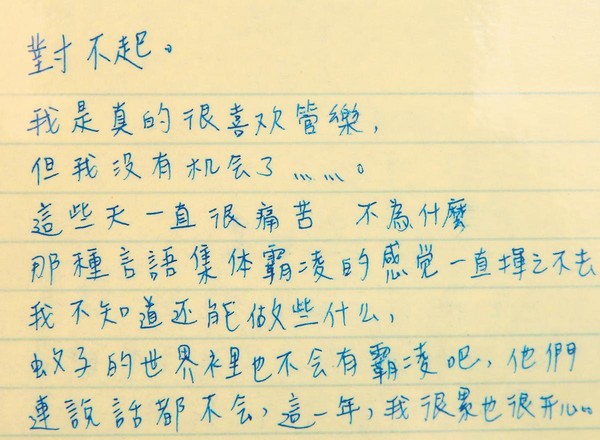 對不起。
我是真的很喜欢管樂,
但我没有机会了⋯⋯。
這些天一直很痛苦 不為什麼
那種言語集体霸凌的感觉一直揮之不去
我不知道还能做些什么,
蚊子的世界裡也不会有霸凌吧,他們
連說話都不会,這一年,我很累也很开心。